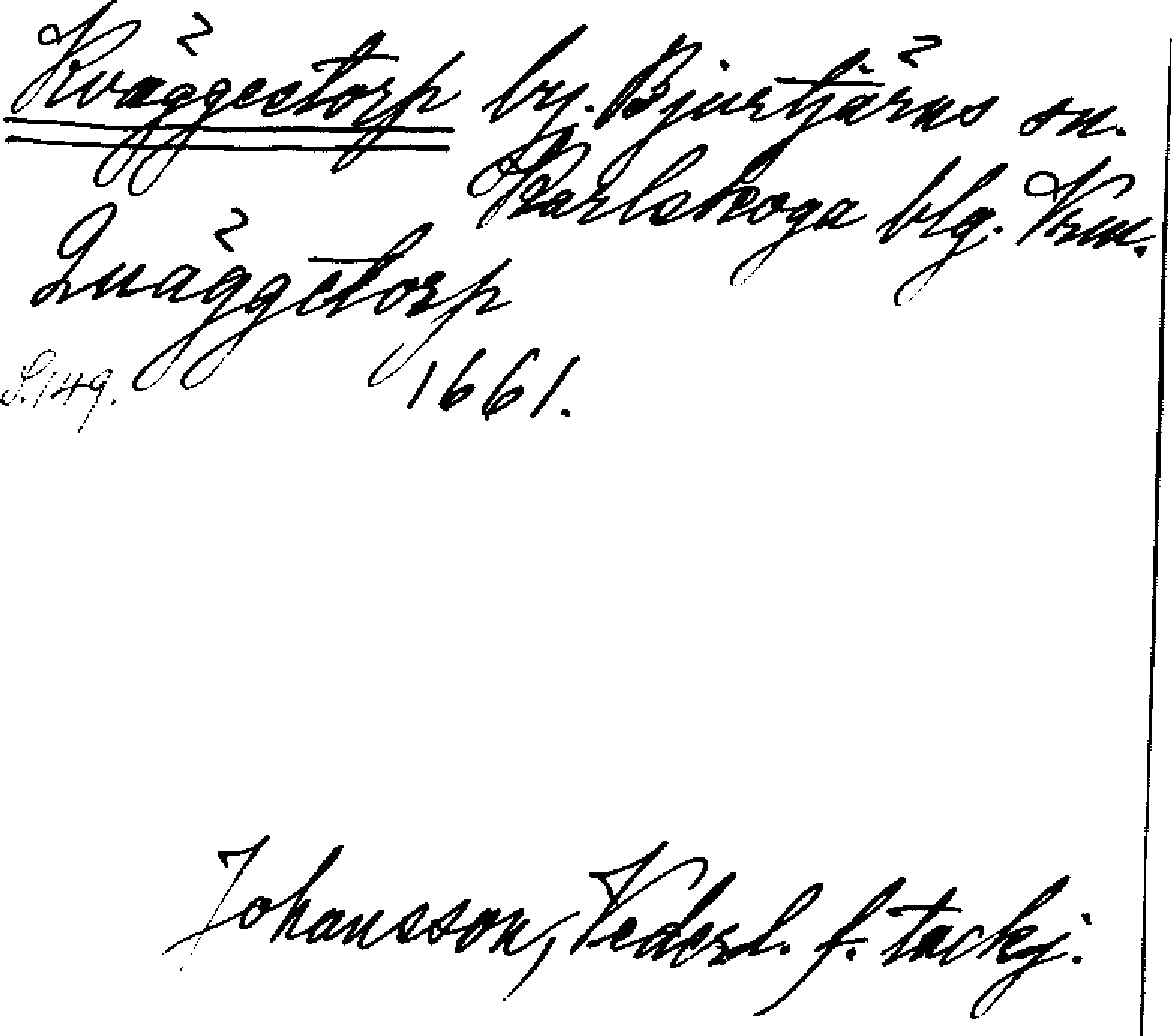 Kväggestorp by. Bjurtjärns sn.
Karlskoga blg. Vrm.
Quäggetorp
S.149. 1661.
Johansson, Vederl. f. tackj.